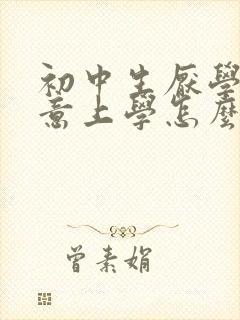 初中生厭學
意上學怎麼
曾素娟